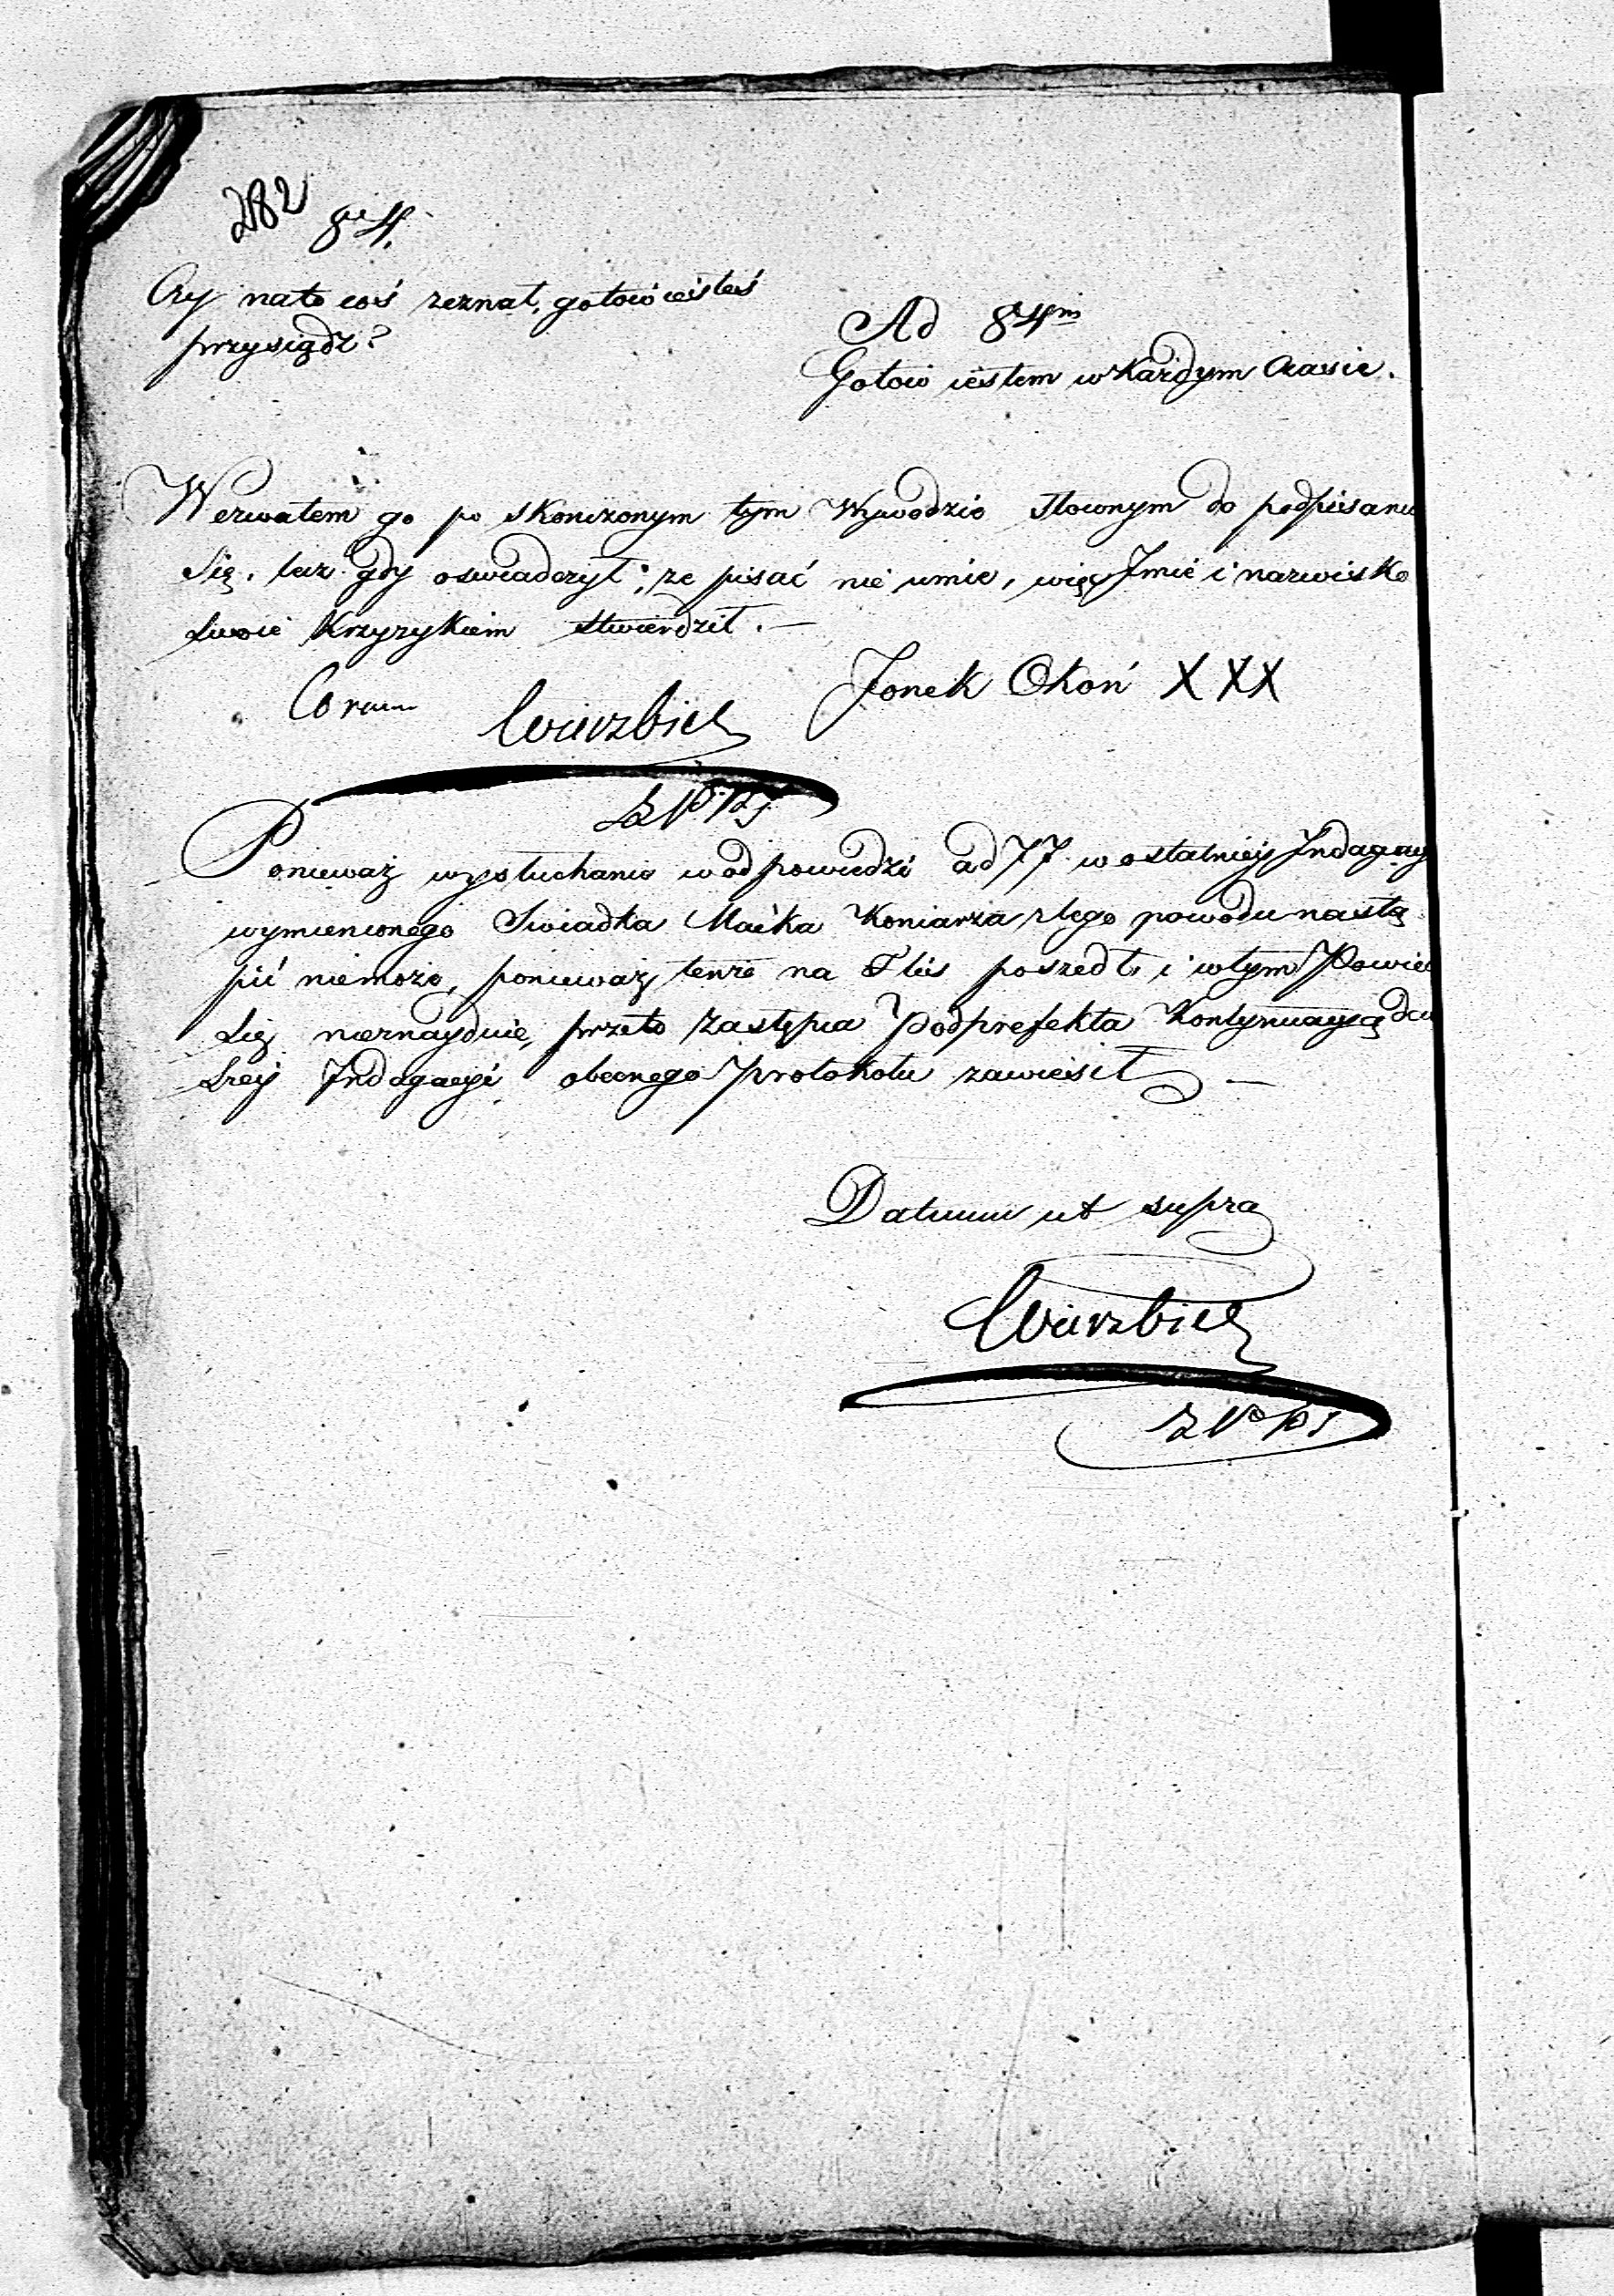 282
84.
Czy nato coś zeznał, gotów iesteś
przysiądz?
Ad 84m
Gotów iestem w Każdym Czasie.
Wezwałem go po skonczonym tym Wywodzie słownym do podpisania
Się, lecz gdy oswiadczył; ze pisać nie umie, więc Jmie i nazwisko
swoie Krzyzykiem stwierdził. —
Coram
Jonek Okoń XXX
Wierzbick
Ponieważ wysłuchanie w odpowiedzi ad 77. w ostatniey Indagacyi
wymienionego Swiadka Maćka Koniarza z tego powodu nastą
pić niemoże, ponieważ tenże na Flis poszedł, i w tym Powiec
się nieznayduie, przeto zastępca Podprefekta Kontynuacyą dal
szey Indagacyi obecnego Protokołu zawiesił —
Datum ut supra
Wierzbick